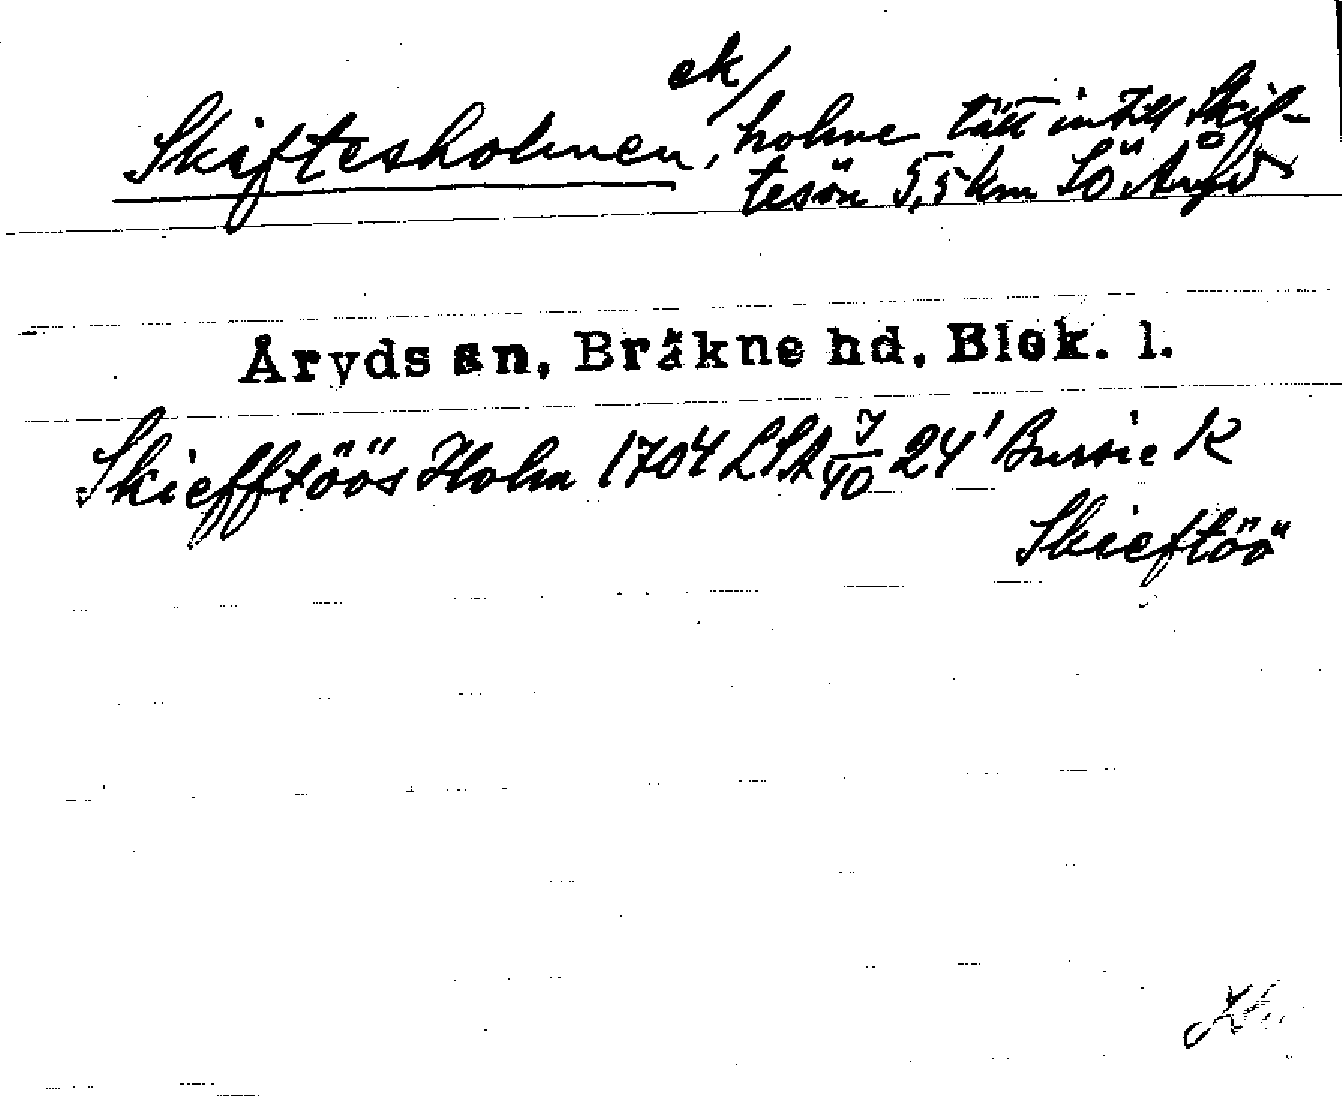 ek/
Skiftesholmen, holme tätt intill Skif-
tesön 5,5 km SÖ Åryd
Åryds sn, Bräkne hd. Blek. l.
Skiefftöös Holm 1704 LSA J/10 24' Bussie K
Skieftöö